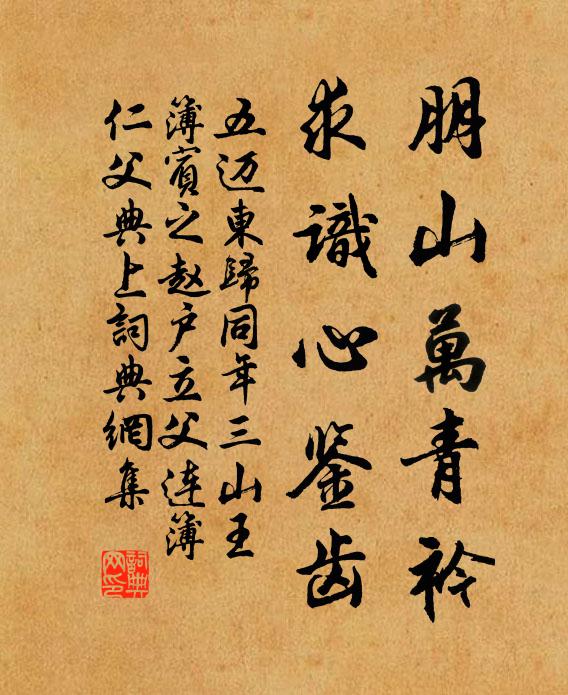 朋山萬青衿
求識心鉴齿
五迈東歸同年三山王
簿賓之赵户立父连簿
仁父典上詞典網集
詞典网印